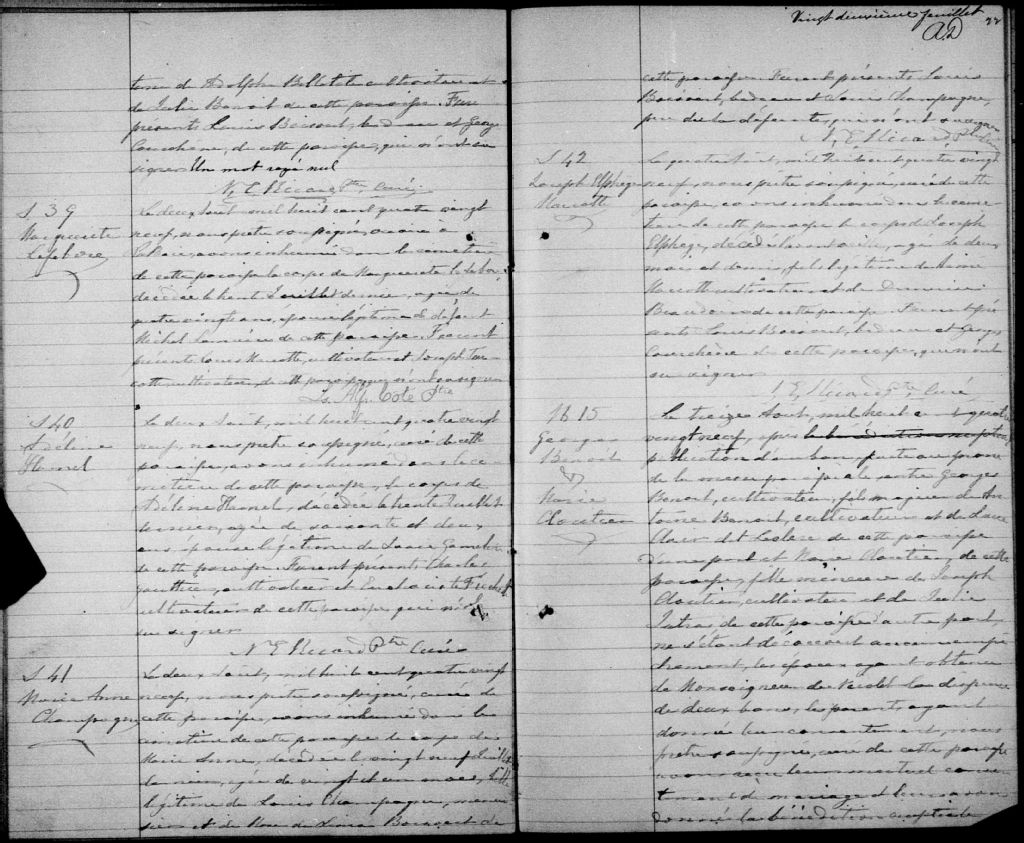 toine de Adolphe Belletête cultivateur et
de Julie Benoit de cette paroisse. Furent
présents Louis Boisvert, bedeau et Georges
Courchène, de cette paroisse, qui n'ont su
signer. Un mot rayé nul
N. E. Ricard Ptre, Curé
S 39
Marguerite
Lefebvre
Le deux Août mil huit cent quatre vingt
neuf, nous prêtre soussigné, vicaire à
avons inhumé dans le cimetière
de cette paroisse le corps de Marguerite Lefebvre
décédée le trente Juillet dernier, âgée de
quatre vingts ans, épouse légitime de défunt
Michel de cette paroisse. Furent
présents Louis Marcotte, cultivateur et Joseph
cultivateur, de cette paroisse qui n'ont su signer
Ls Alp. Côté Ptre
S 40
Adéline
Hamel
Le deux Août, mil huit cent quatre vingt
neuf, nous prêtre soussigné, curé de cette
paroisse, avons inhumé dans le ci-
metière de cette paroisse, le corps de
Adéline Hamel, décédée le trente Juillet
dernier, âgée de soixante et deux
ans, épouse légitime de Louis
de cette paroisse. Furent présents Charles
Gauthier, cultivateur et
cultivateur de cette paroisse qui n'ont
su signer
N. E. Ricard Ptre Curé
S 41
Marie Anne
Champagne
Le deux Août, mil huit cent quatre vingt
neuf, nous prêtre soussigné, curé de
cette paroisse, avons inhumé dans le
cimetière de cette paroisse le corps de
Marie Anne, décédée le vingt neuf Juillet
dernier, âgée de vingt et un mois, fille
légitime de Louis Champagne, menui-
sier et de Rose de Lima Boisvert de
Vingt deuxième feuillet
22
A.D
cette paroisse. Furent présents Louis
Boisvert, bedeau et Louis Champagne,
père de la défunte, qui n'ont su signer
N. E. Ricard Ptre Curé
S 42
Joseph Elphège
Marcotte
Le quatre Août, mil huit cent quatre vingt
neuf, nous prêtre soussigné, curé de cette
paroisse, avons inhumé dans le cime-
tière de cette paroisse le corps de Joseph
Elphège, décédé âgé de deux
mois et demi, fils légitime de
Marcotte cultivateur et de
Beaudoin de cette paroisse. Furent pré-
sents Louis Boisvert, bedeau et Georges
Courchène de cette paroisse, qui n'ont
su signer
N. E. Ricard Ptre, Curé
M 15
Georges
Benoit
&
Marie
Cloutier
Le treize Août, mil huit cent quatre
vingt neuf, après la bénédiction nuptiale
publication d'un ban, faite au prône
de la messe paroissiale entre Georges
Benoit, cultivateur, fils majeur de An-
toine Benoit, cultivateur et de Luce
Leclerc de cette paroisse
d'une part et Marie Cloutier, de cette
paroisse, fille mineure de Joseph
Cloutier, cultivateur et de Julie
de cette paroisse d'autre part,
ne s'étant découvert aucun empê-
chement, les époux ayant obtenu
de Monseigneur de Nicolet la dispense
de deux bans, les parents ayant
donné leur consentement, nous
prêtre soussigné, curé de cette paroisse
avons reçu leur mutuel consen-
tement de mariage et leur avons
donné la bénédiction nuptiale